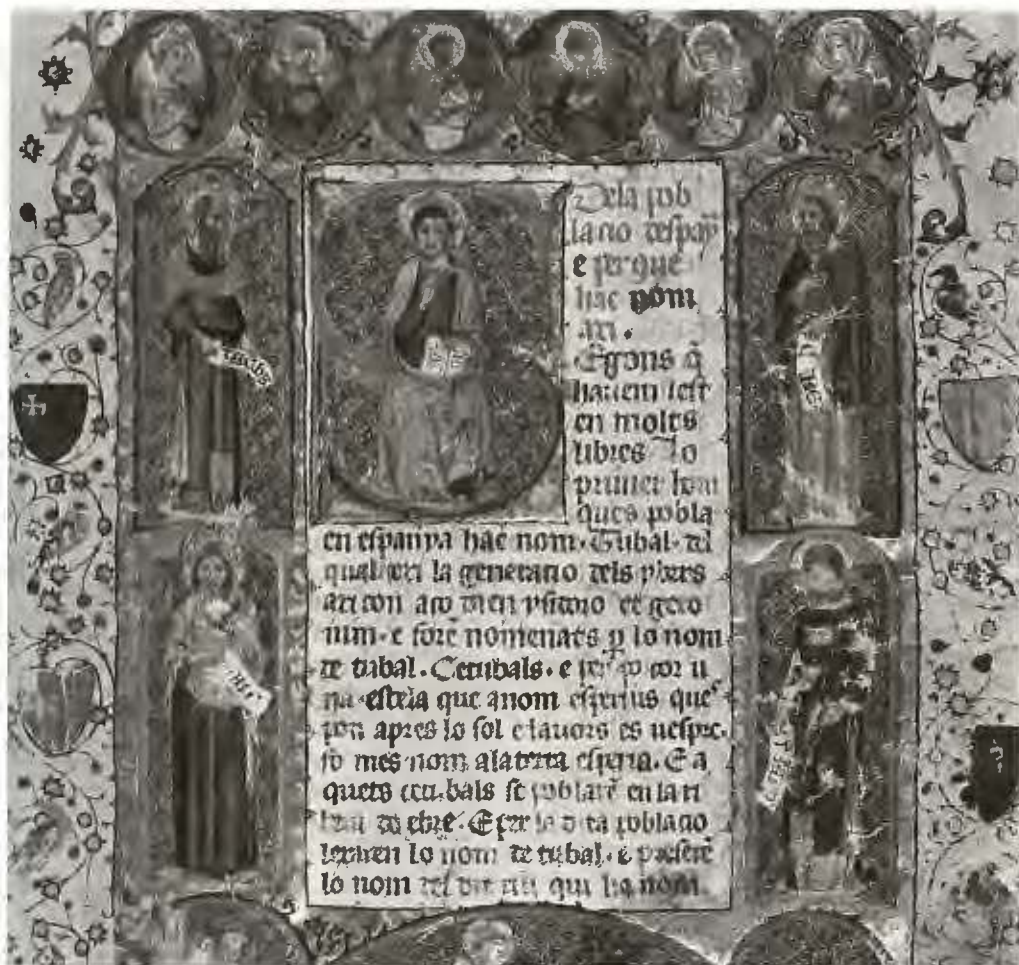 Dela pob
lacio despay
e perque
hac nom
axi.
Egons q̄
hauem lest
en moltes
libres Lo
primer hom
ques pobla
en espanya hac nom. Tubal. del
qual axi la generacio dels ybers
axi con aço dien ysidoro et gero
nim. e forē nomenats p lo nom
de tubal. Cetubals. e per ço cor u
na estela que a nom esperius ques
pon apres lo sol e lauors es uespre.
fo mes nom ala terra esperia. E a
quets cetubals se poblarē en la ri
bera de ebre. E per la dita poblacio
lexaren lo nom de tubal. e preserē
lo nom del dit riu qui ha nom